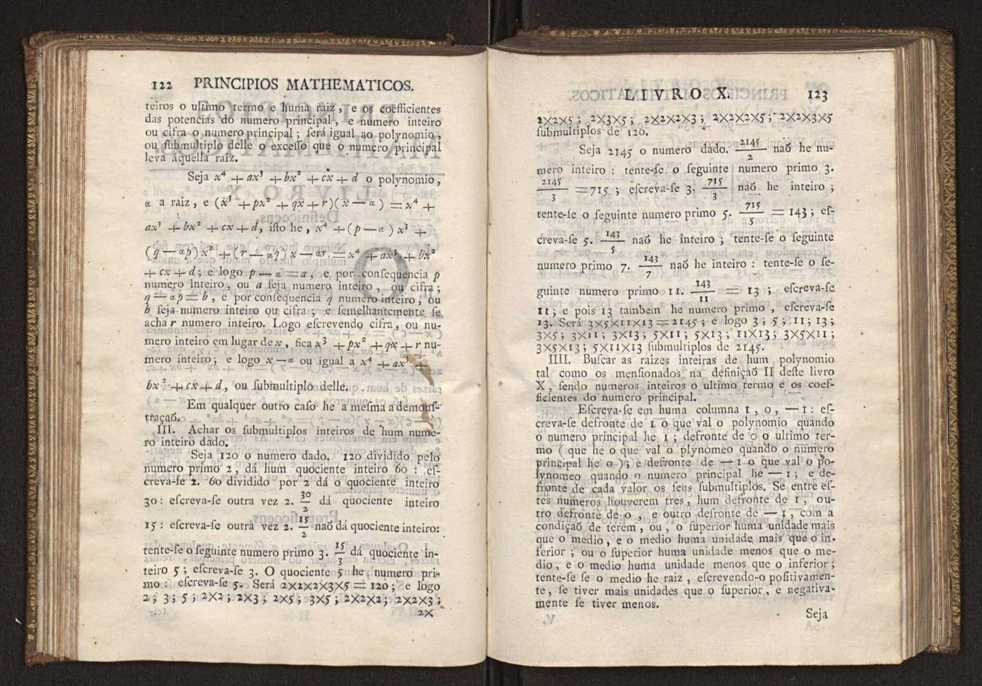 122 PRINCIPIOS MATHEMATICOS.
teiros o ultimo termo e huma raiz, e os coefficientes
das potencias do numero principal, e numero inteiro
ou cifra o numero principal; ſerá igual ao polynomio,
ou ſubmultiplo delle o exceſſo que o numero principal
leva áquella raiz.
Seja x⁴ + ax³ + bx² + cx + d o polynomio,
α a raiz, e (x³ + px² + qx + r)(x — α) = x⁴ +
ax³ + bx² + cx + d, iſto he, x⁴ + (p — α) x³ +
(q — αp) x² + (r — αq) x — αr = x⁴ + ax³ + bx²
+ cx + d; e logo p — α = a, e por conſequencia p
numero inteiro, ou a ſeja numero inteiro, ou cifra;
q — αp = b, e por conſequencia q numero inteiro, ou
b ſeja numero inteiro ou cifra; e ſemelhantemente ſe
acha r numero inteiro. Logo eſcrevendo cifra, ou nu-
mero inteiro em lugar de x, fica x³ + px² + qx + r nu-
mero inteiro; e logo x — α ou igual a x⁴ + ax³ +
bx² + cx + d, ou ſubmultiplo delle.
Em qualquer outro caſo he a meſma a demonſ-
traçaõ.
III. Achar os ſubmultiplos inteiros de hum nume-
ro inteiro dado.
Seja 120 o numero dado. 120 dividido pelo
numero primo 2, dá hum quociente inteiro 60 : eſ-
creva-ſe 2. 60 dividido por 2 dá o quociente inteiro
30: eſcreva-ſe outra vez 2. 30/2 dá quociente inteiro
15 : eſcreva-ſe outra vez 2. 15/2 naõ dá quociente inteiro:
tente-ſe o ſeguinte numero primo 3. 15/3 dá quociente in-
teiro 5; eſcreva-ſe 3. O quociente 5 he numero pri-
mo : eſcreva-ſe 5. Será 2×2×2×3×5 = 120; e logo
2; 3; 5; 2×2; 2×3; 2×5; 3×5; 2×2×2; 2×2×3;
2×
LIVRO X. 123
2×2×5; 2×3×5; 2×2×2×3; 2×2×2×5; 2×2×3×5
ſubmultiplos de 120.
Seja 2145 o numero dado. 2145/2 naõ he nu-
mero inteiro : tente-ſe o ſeguinte numero primo 3.
2145/3 = 715; eſcreva-ſe 3. 715/3 naõ he inteiro;
tente-ſe o ſeguinte numero primo 5. 715/5 = 143; eſ-
creva-ſe 5. 143/5 naõ he inteiro; tente-ſe o ſeguinte
numero primo 7. 143/7 naõ he inteiro : tente-ſe o ſe-
guinte numero primo 11. 143/11 = 13; eſcreva-ſe
11; e pois 13 tambem he numero primo, eſcreva-ſe
13. Será 3×5×11×13 = 2145; e logo 3; 5; 11; 13;
3×5; 3×11; 3×13; 5×11; 5×13; 11×13; 3×5×11;
3×5×13; 5×11×13 ſubmultiplos de 2145.
IIII. Buſcar as raizes inteiras de hum polynomio
tal como os menſionados na definiçaõ II deſte livro
X, ſendo numeros inteiros o ultimo termo e os coef-
ficientes do numero principal.
Eſcreva-ſe em huma columna 1, 0, — 1: eſ-
creva-ſe defronte de 1 o que val o polynomio quando
o numero principal he 1; defronte de 0 o ultimo ter-
mo (que he o que val o plynomeo quando o numero
principal he 0); e defronte de — 1 o que val o po-
lynomeo quando o numero principal he — 1; e de-
fronte de cada valor os ſeus ſubmultiplos. Se entre eſ-
tes numeros houverem tres, hum defronte de 1, ou-
tro defronte de 0, e outro defronte de — 1, com a
condiçaõ de terem, ou, o ſuperior huma unidade mais
que o medio, e o medio huma unidade mais que o in-
ferior; ou o ſuperior huma unidade menos que o me-
dio, e o medio huma unidade menos que o inferior;
tente-ſe ſe o medio he raiz, eſcrevendo-o poſitivamen-
te, ſe tiver mais unidades que o ſuperior, e negativa-
mente ſe tiver menos.
Seja